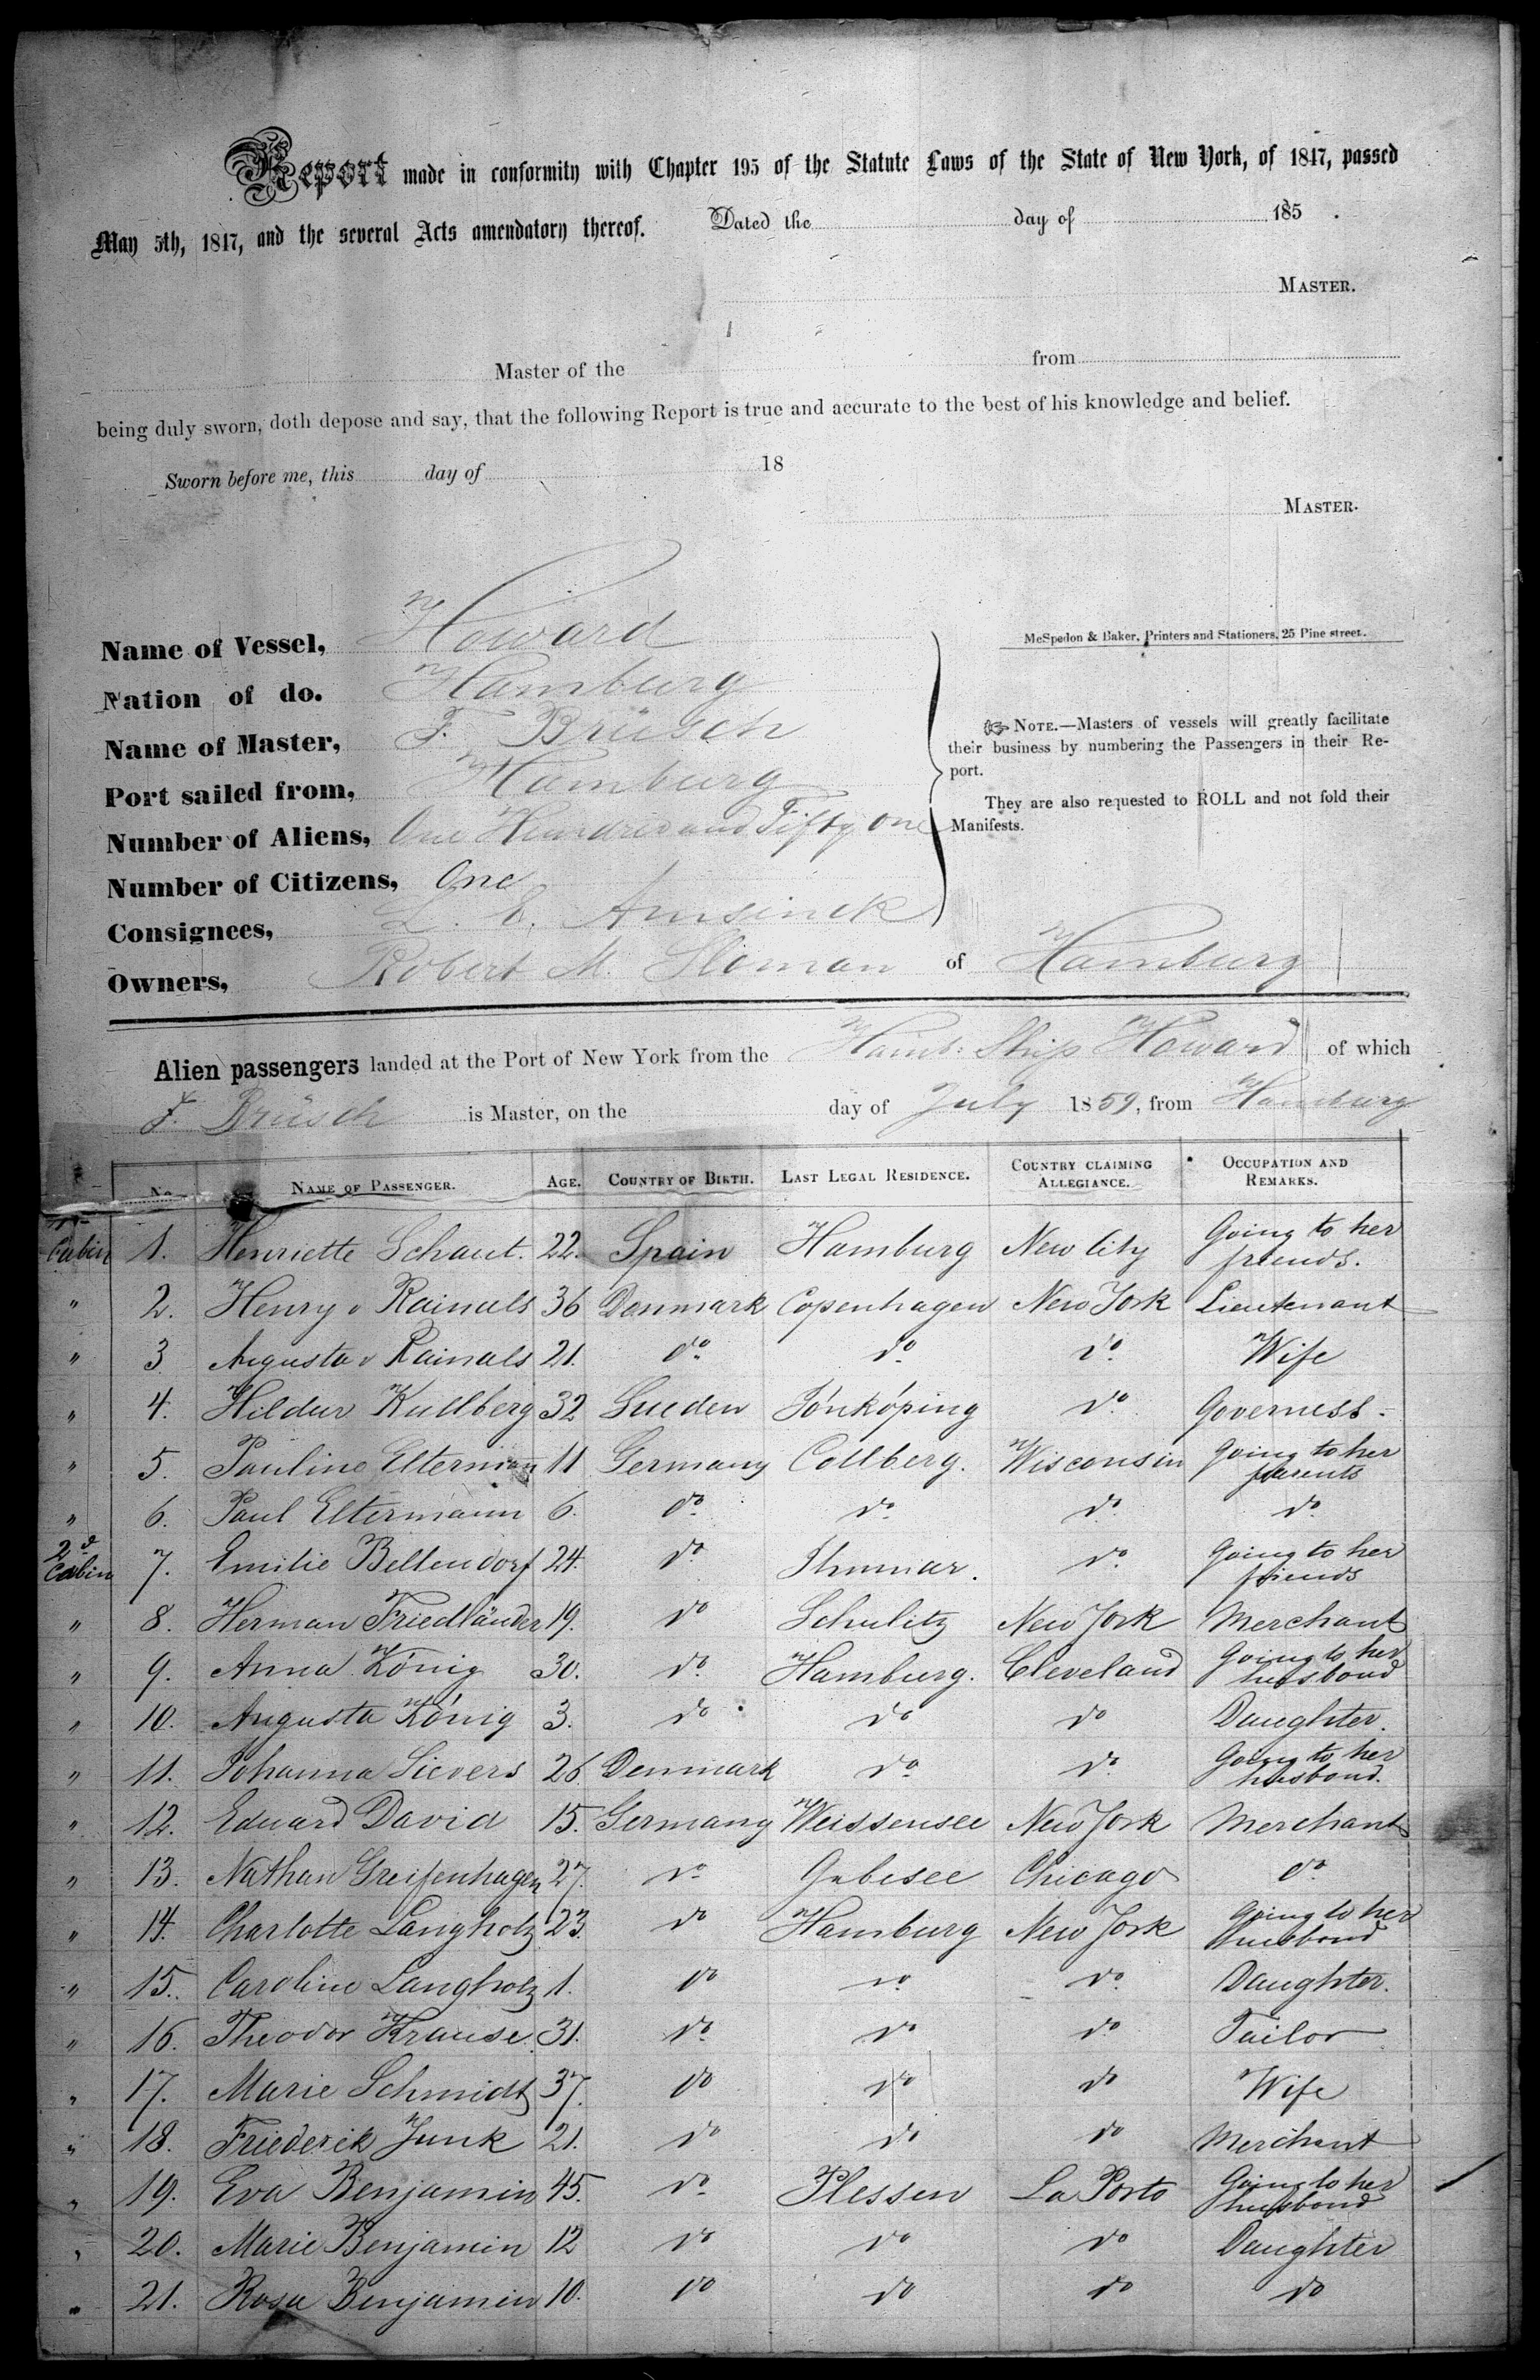 Report made in conformity with Chapter 195 of the Statute Laws of the State of New York, of 1847, passed
May 5th, 1847, and the several Acts amendatory thereof. Dated the day of 185 .
MASTER.
Master of the from
being duly sworn, doth depose and say, that the following Report is true and accurate to the best of his knowledge and belief.
Sworn before me, this day of 18
MASTER.
Name of Vessel, Howard
McSpedon & Baker, Printers and Stationers, 25 Pine street.
Nation of do. Hamburg
Name of Master, F. Brüsch
Port sailed from, Hamburg
Number of Aliens, One Hundred and Fifty one
Number of Citizens, One
Consignees, L. E. Amsinck
Owners, Robert M. Sloman of Hamburg
NOTE.—Masters of vessels will greatly facilitate
their business by numbering the Passengers in their Re-
port.
They are also requested to ROLL and not fold their
Manifests.
Alien passengers landed at the Port of New York from the Hamb: Ship Howard of which
F. Brüsch is Master, on the day of July 1859, from Hamburg
No. NAME OF PASSENGER. AGE. COUNTRY OF BIRTH. LAST LEGAL RESIDENCE. COUNTRY CLAIMING ALLEGIANCE. OCCUPATION AND REMARKS.
Cabin 1. Henriette Schaut. 22. Spain Hamburg New City Going to her friends.
" 2. Henry v Rainals 36 Danmark Copenhagen New York Lieutenant
" 3 Augusta v Rainals 21. do do do Wife
" 4. Hildur Kullberg 32 Sueden Jönköping do Governess.
" 5. Pauline Eltermann 11 Germany Collberg. Wisconsin Going to her parents
" 6. Paul Eltermann 6. do do do do
2d Cabin 7. Emilie Bellendorf 24. do do Going to her friends
" 8. Herman Friedländer 19. do Schulitz New York Merchant
" 9. Anna König 30. do Hamburg. Cleveland Going to her husband
" 10. Augusta König 3. do do do Daughter.
" 11. Johanna Sievers 26 Denmark do do Going to her husband.
" 12. Eduard David 15. Germany Weissensee New York Merchant
" 13. Nathan Greifenhagen 27. do Gebesee Chicago do
" 14. Charlotte Langholz 23. do Hamburg New York Going to her husband
" 15. Caroline Langholz 1. do do do Daughter.
" 16. Theodor Krause 31. do do do Tailor
" 17. Marie Schmidt 37. do do do Wife
" 18. Friederik Junk 21. do do do Merchant
" 19. Eva Benjamin 45. do Plessen La Porto Going to her husband
" 20. Marie Benjamin 12 do do do Daughter
" 21. Rosa Benjamin 10. do do do do